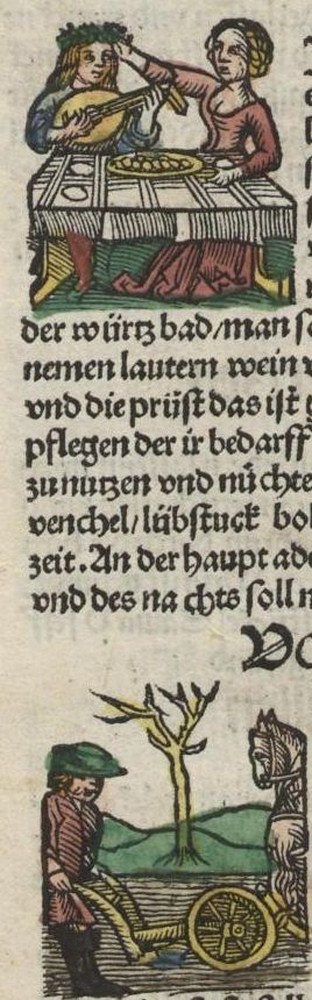 der würtz bad/man s
nemen lautern wein v
vnd die prüst das ist g
pflegen der ir bedarff
zu nutzen vnd nůchte
venchel/lübstuck bol
zeit. An der haupt ade
vnd des na chts soll n
Vo